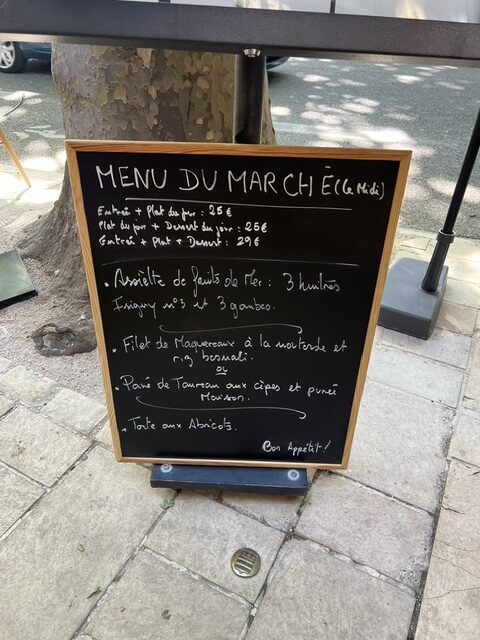 MENU DU MARCHÉ (Le Midi)
Entrée + Plat du jour : 25€
Plat du jour + Dessert du jour : 25€
Entrée + Plat + Dessert : 29€
• Assiette de fruits de Mer : 3 huîtres
Isigny n°3 et 3 gambas.
• Filet de Maquereaux à la moutarde et
riz basmati.
OU
• Pavé de Taureau aux cèpes et purée
Maison.
• Tarte aux Abricots.
Bon Appétit !